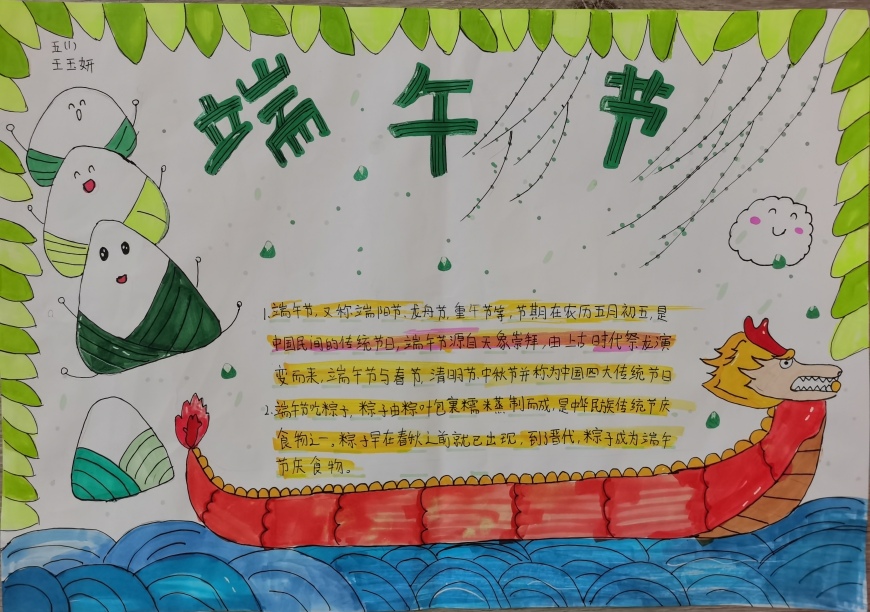 五(1)
王玉妍
端午节
1.端午节,又称端阳节,龙舟节,重午节等,节期在农历五月初五,是
中国民间的传统节日,端午节源自天象崇拜,由上古时代祭龙演
变而来,端午节与春节,清明节中秋节并称为中国四大传统节日
2.端午节吃粽子,粽子由粽叶包裹糯米蒸制而成,是中华民族传统节庆
食物之一,粽子早在春秋之前就已出现,到了晋代,粽子成为端午
节庆食物。